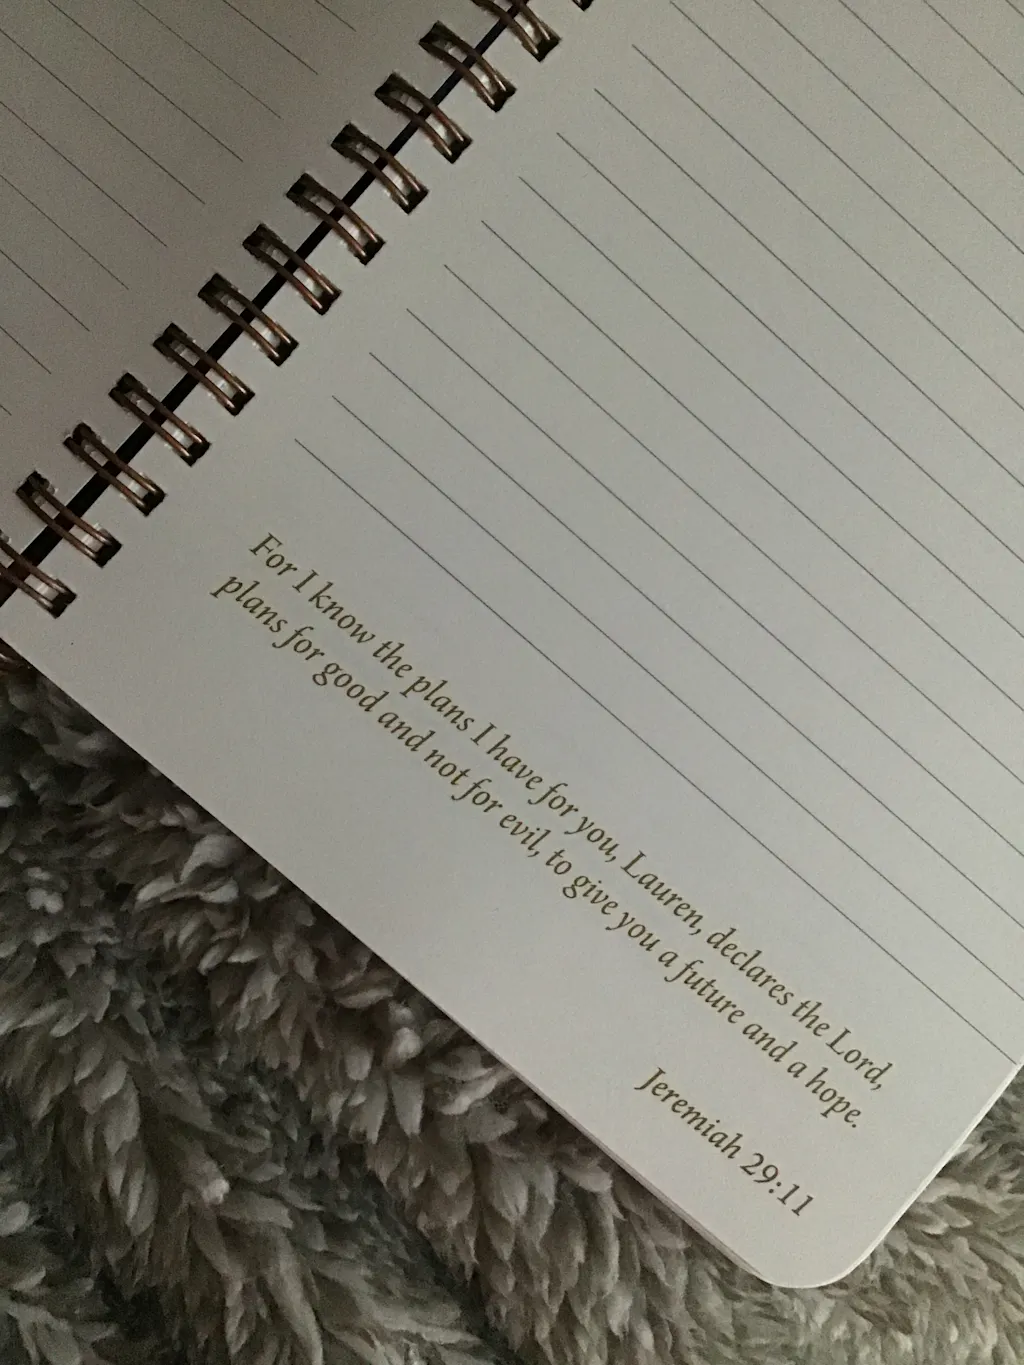 For I know the plans I have for you, Lauren, declares the Lord,
plans for good and not for evil, to give you a future and a hope.
Jeremiah 29:11